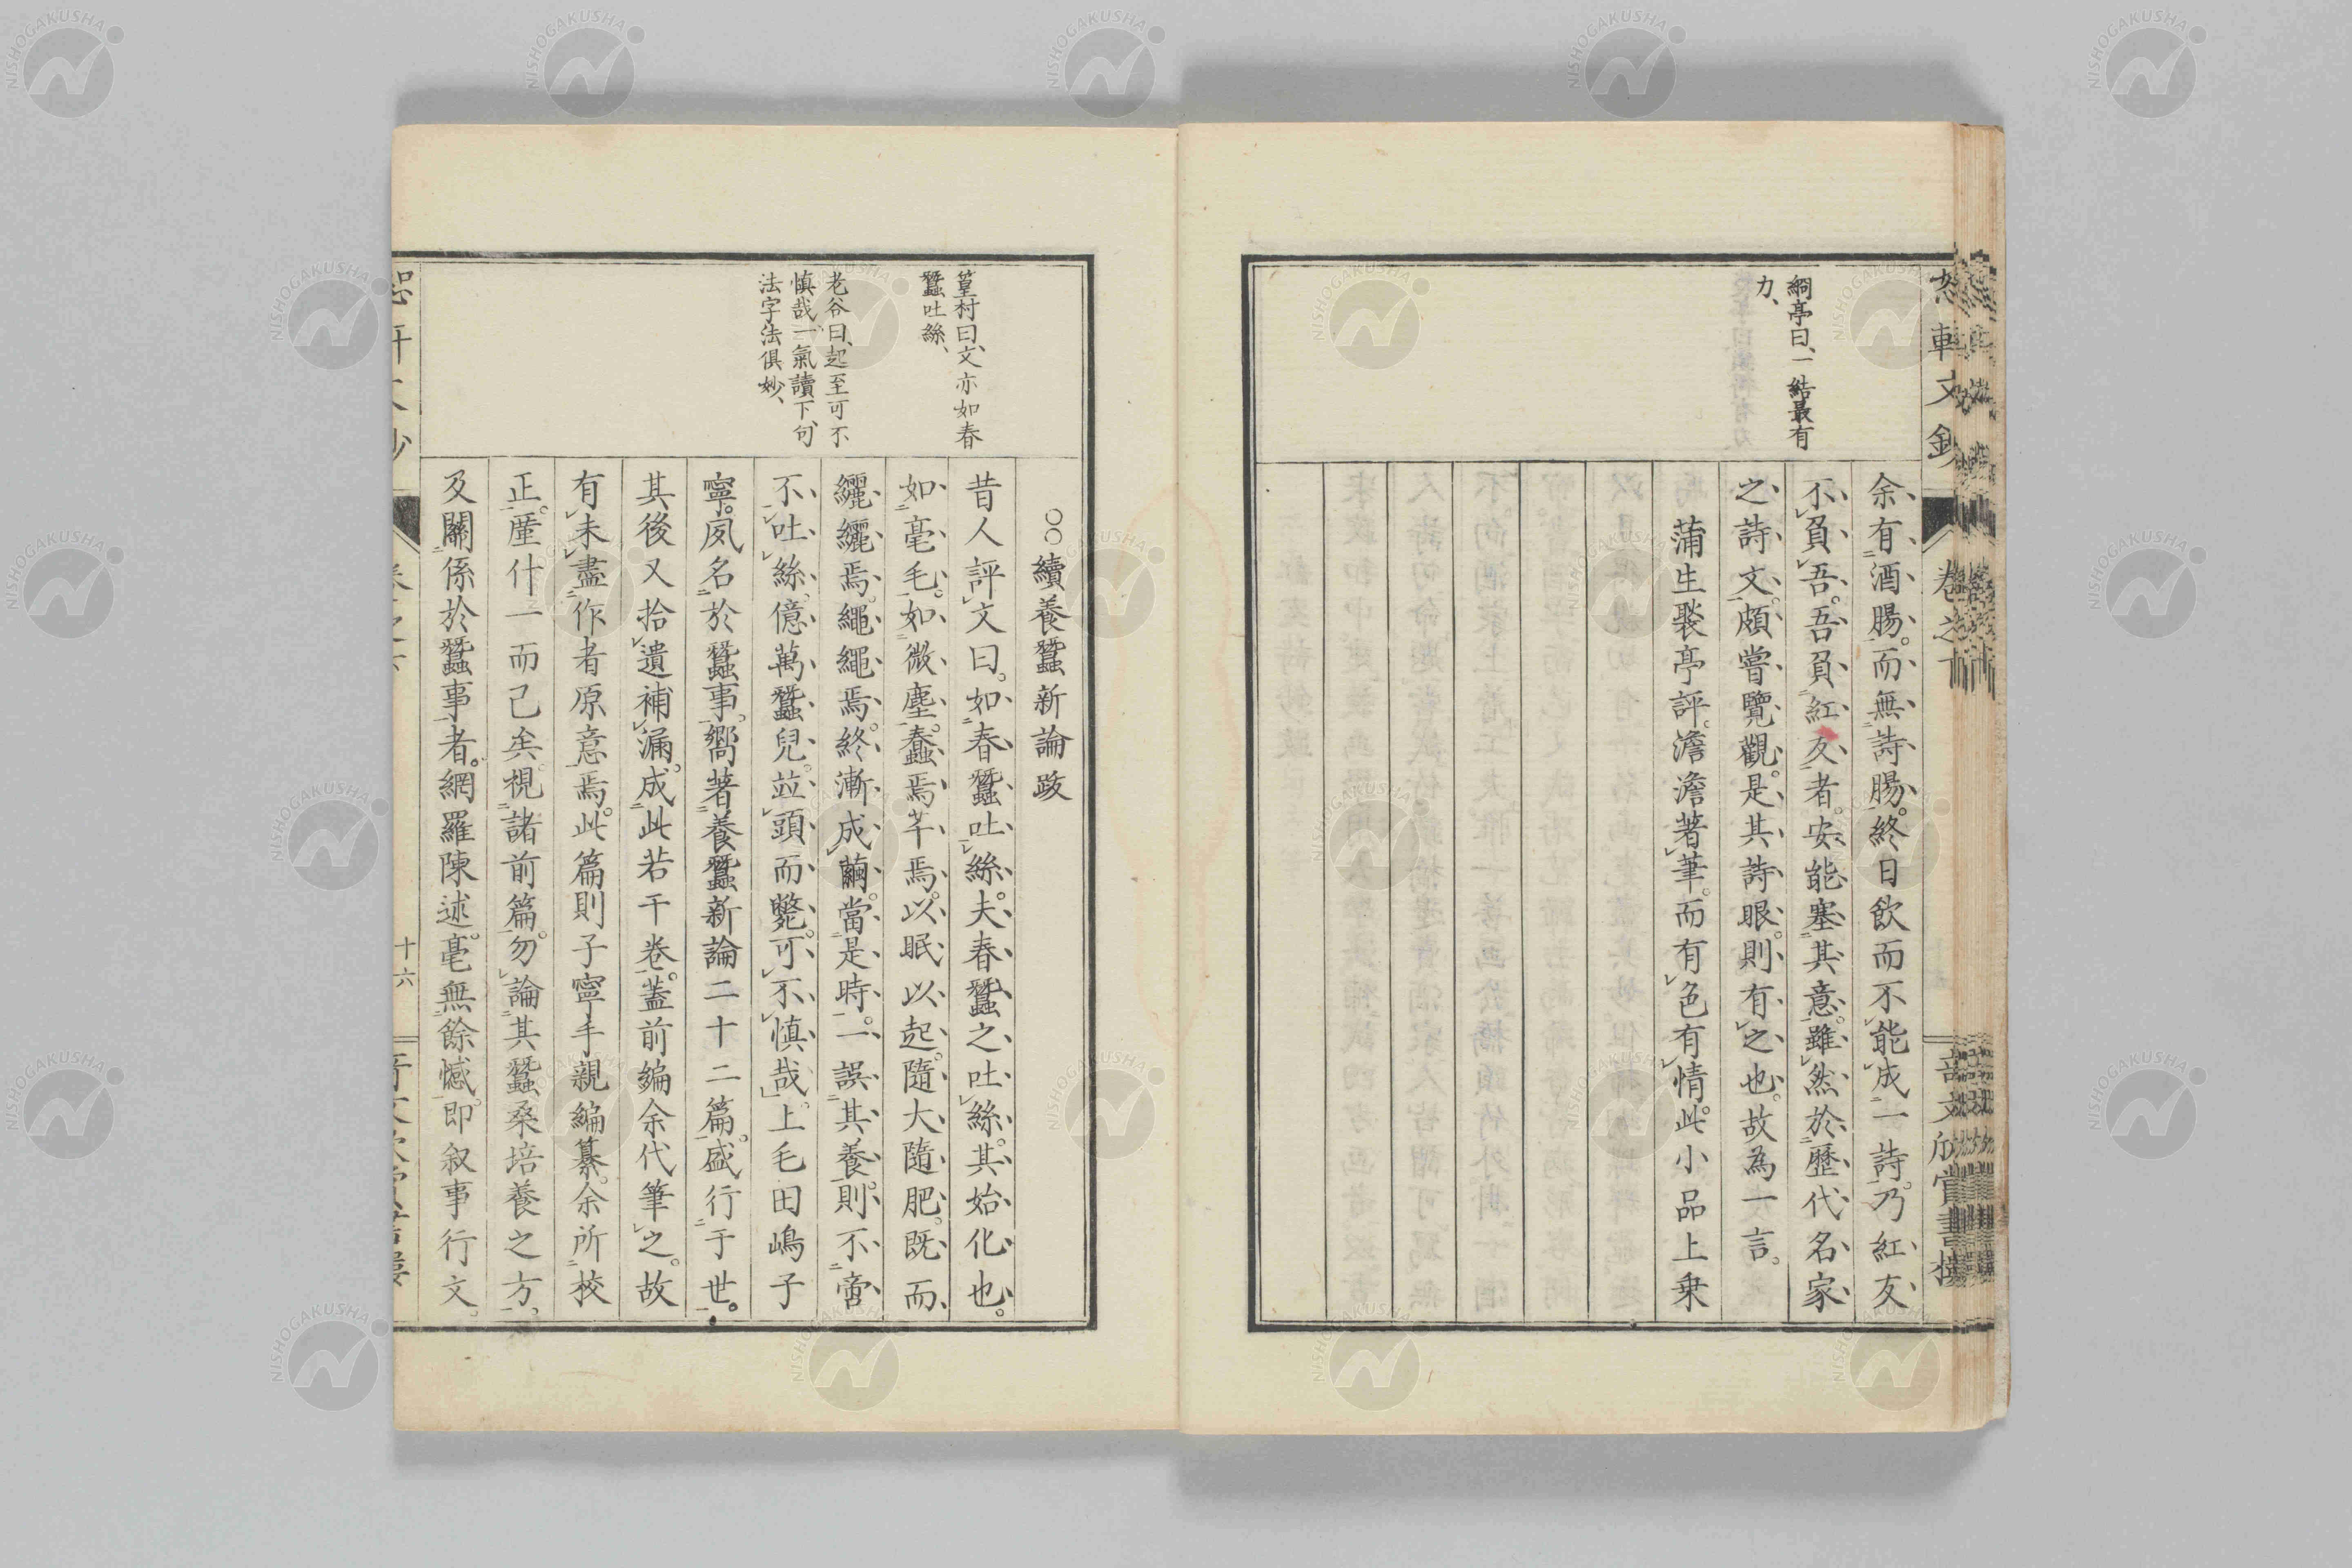 絅亭曰、一結最有
力、
余有酒腸。而無詩腸。終日飲而不能成一詩。乃紅友
不負吾。吾負紅友者。安能塞其意。雖然於歷代名家
之詩文。頗嘗覽觀。是其詩眼。則有之也。故為一言。
蒲生褧亭評。澹澹著筆。而有色有情。此小品上乗
篁村曰、文亦如春
蠶吐絲、
老谷曰、起至可不
慎哉、一氣讀下、句
法字法俱妙、
○○續養蠶新論跋
昔人評文曰。如春蠶吐絲。夫春蠶之吐絲。其始化也。
如毫毛。如微塵。蠢焉芊焉。以眠以起。隨大隨肥。既而
纚纚焉。繩繩焉。終漸成繭。當是時。一誤其養。則不啻
不吐絲。億萬蠶兒。竝頭而斃。可不慎哉。上毛田嶋子
寧。夙名於蠶事。嚮著養蠶新論二十二篇。盛行于世。
其後又拾遺補漏。成此若干卷。蓋前編余代筆之。故
有未盡作者原意焉。此篇則子寧手親編纂。余所校
正。厪什一而已矣。視諸前篇。勿論其蠶桑培養之方。
及關係於蠶事者。網羅陳述。毫無餘憾。即叙事行文。
十六